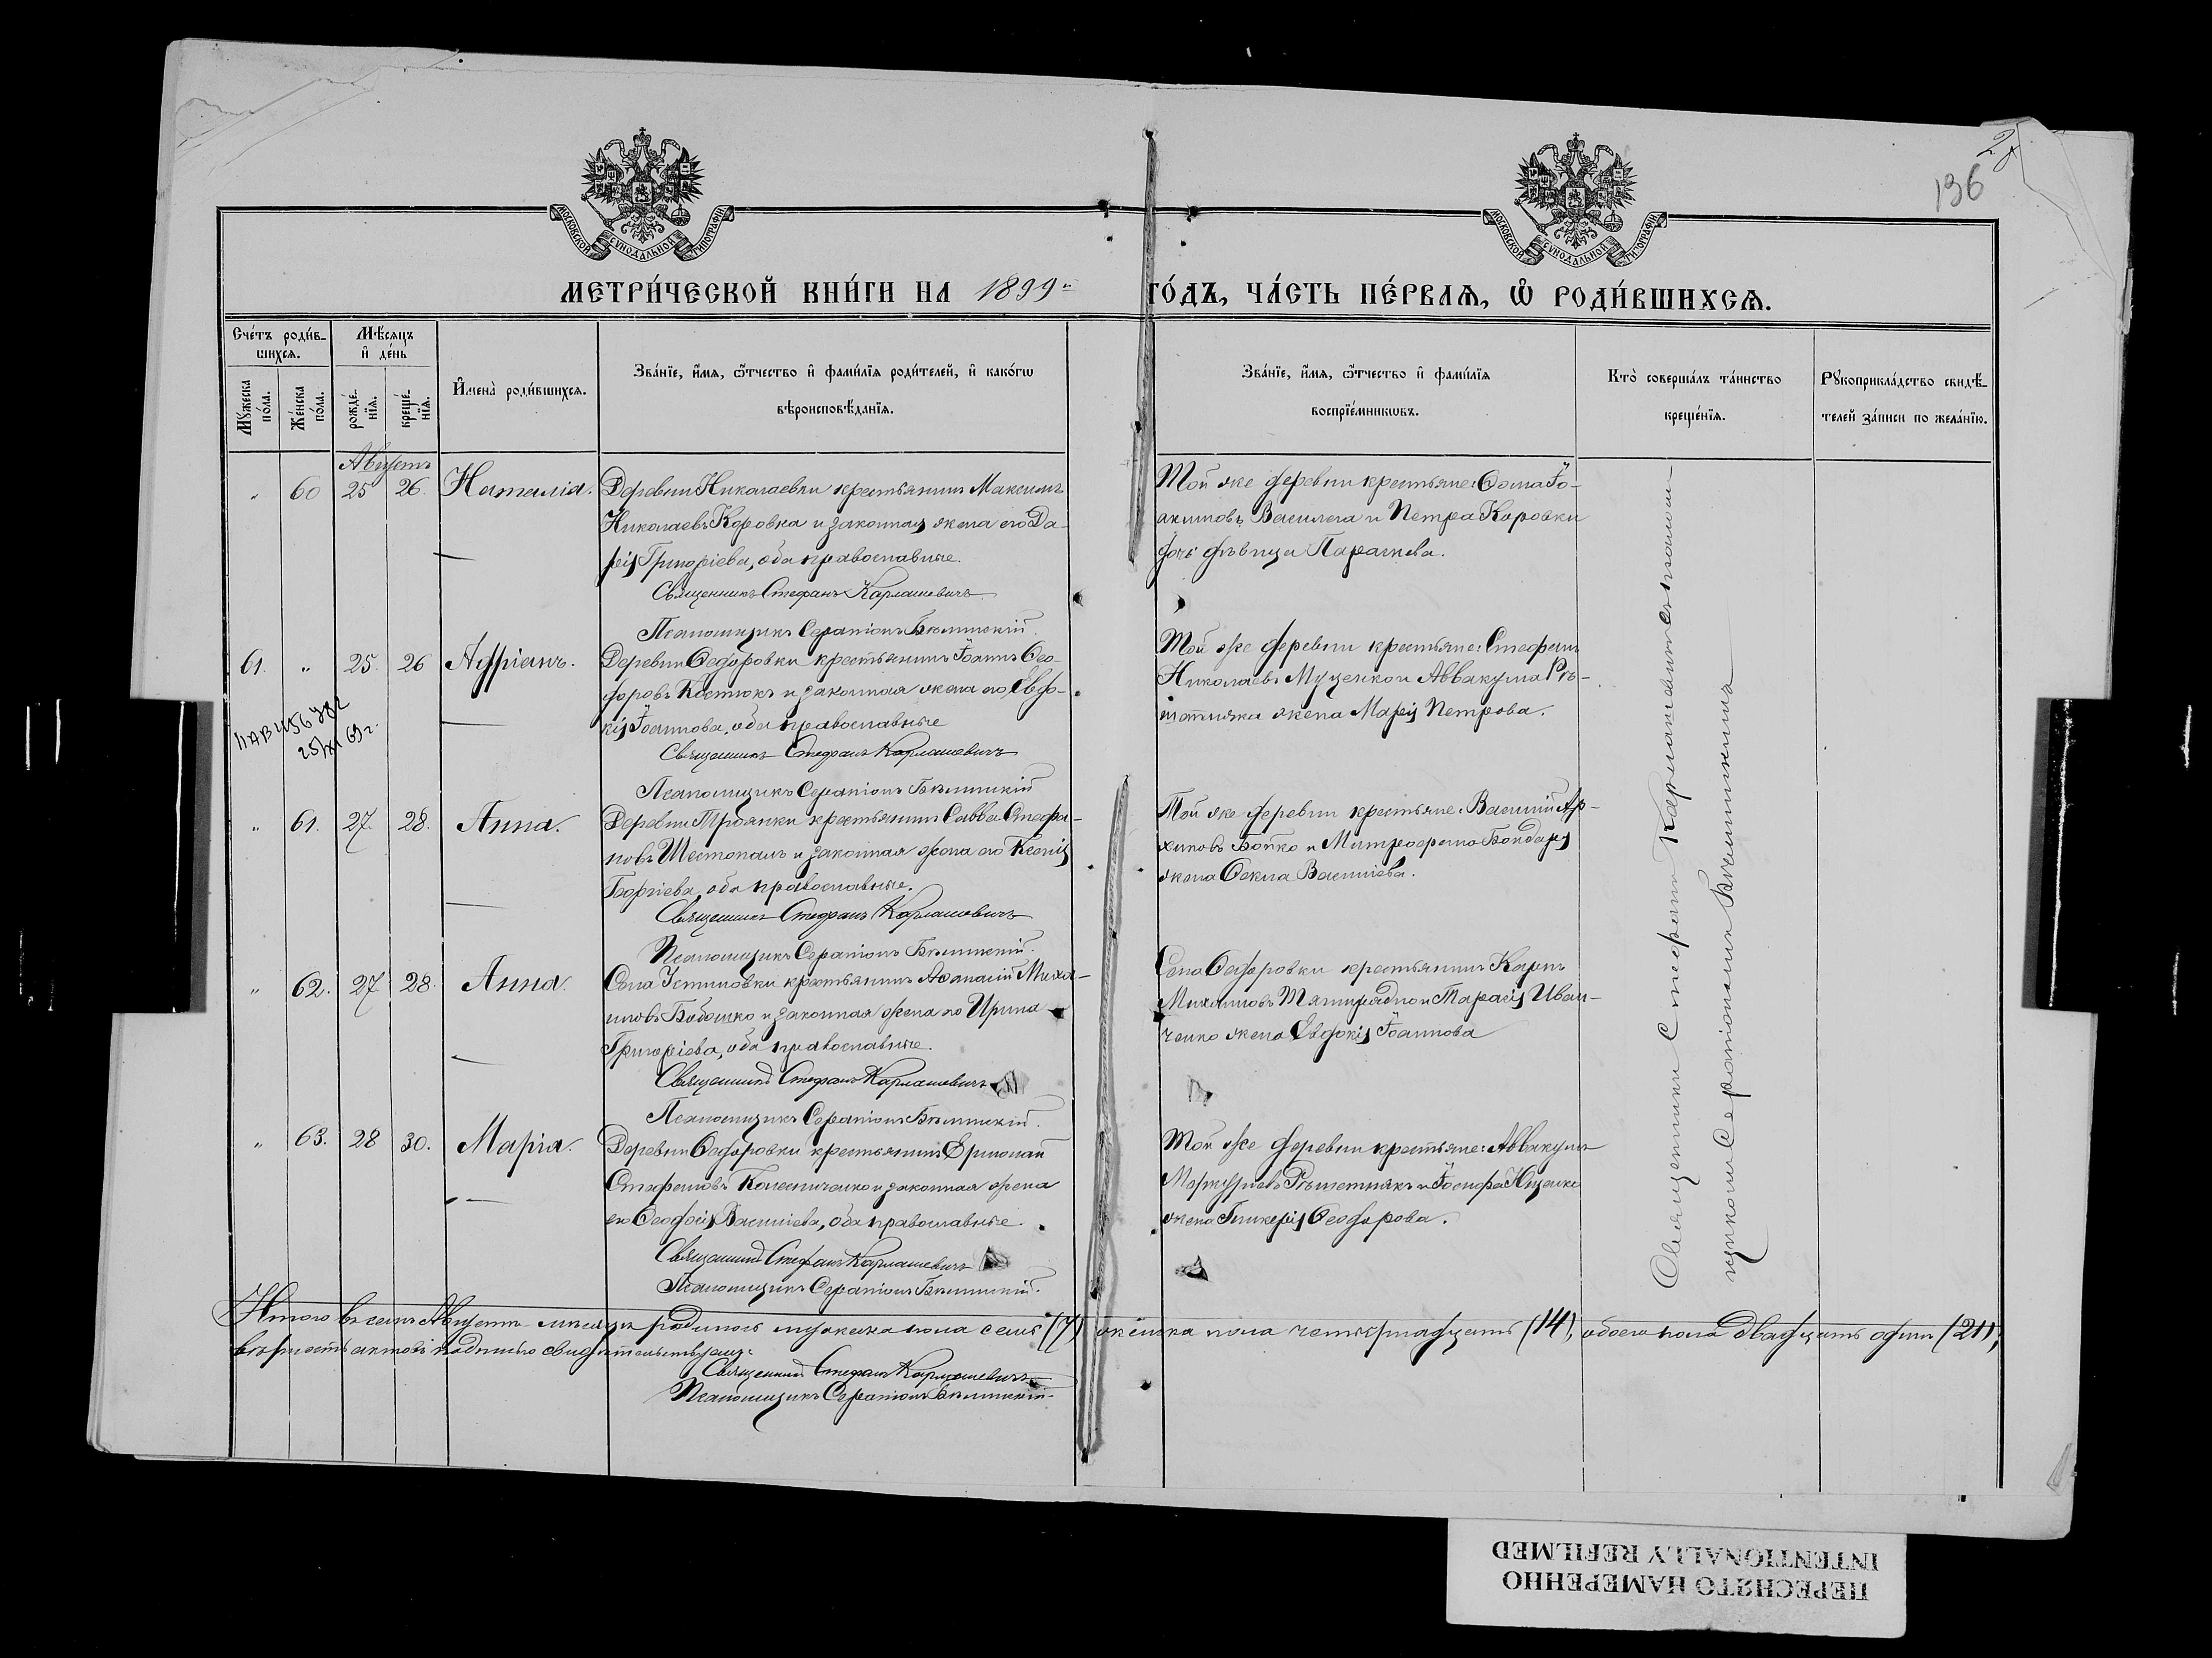 136
МОСКОВСКОЙ СѴНОДАЛЬНОЙ ТИПОГРАФІИ
МОСКОВСКОЙ СѴНОДАЛЬНОЙ ТИПОГРАФІИ
МЕТРИ́ЧЕСКОЙ КНИ́ГИ НА 1899
ГО́ДЪ, ЧА́СТЬ ПЕ́РВАѦ, Ѽ РОДИ́ВШИХСѦ.
Сче́тъ роди́в-
шихсѧ.
Мѣсѧцъ
и҆ де́нь
Мꙋжеска по́ла.
Же́нска по́ла.
рожде́-
нїѧ.
креще́-
нїѧ.
И҆мена̀ роди́вшихсѧ.
Зва́нїе, и҆́мѧ, ѻ҆́тчество и҆ фами́лїѧ роди́телей, и҆ како́гѡ
вѣроисповѣ́данїѧ.
Зва́нїе, и҆́мѧ, ѻ҆́тчество и҆ фами́лїѧ
воспрїе́мникѡвъ.
Кто̀ соверша́лъ та́инство
креще́нїѧ.
Рꙋкоприкла́дство свидѣ́-
телей за́писи по жела́нїю.
Августъ
" 60 25 26. Наталія.
Деревни Николаевки крестьянинъ Максимъ
Николаевъ Коровка и законная жена его Да-
рія Григоріева, оба православные.
Священникъ Стефанъ Карлашевичъ
Псаломщикъ Серапіонъ Бѣлинскій.
Той же деревни крестьяне: Ѳома Іо-
акимовъ и Петра Коровки
дочь дѣвица Параскева.
61. " 25. 26 Адріанъ.
Деревни Ѳедоровки крестьянинъ Іоаннъ Ѳео-
доровъ Костюкъ и законная жена его Евдо-
кія Іоаннова, оба православные
Священникъ Стефанъ Карлашевичъ
Псаломщикъ Серапіонъ Бѣлинскій
Той же деревни крестьяне: Стефанъ
Николаевъ Муценко и Аввакума Рѣ-
шетняка жена Марія Петрова.
69 г.
" 61. 27. 28. Анна.
Деревни Троянки крестьянинъ Савва Стефа-
новъ Шестопалъ и законная жена его Ксенія
Георгіева, оба православные.
Священникъ Стефанъ Карлашевичъ
Псаломщикъ Серапіонъ Бѣлинскій.
Той же деревни крестьяне: Василій Ар-
хиповъ Бойко и Митрофана Бондаря
жена Ѳекла Василіева.
" 62. 27 28. Анна.
Села Устиновки крестьянинъ Аѳанасій Миха-
иловъ Бабошко и законная жена его Ирина
Григоріева, оба православные.
Священникъ Стефанъ Карлашевичъ
Псаломщикъ Серапіонъ Бѣлинскій.
Села Ѳедоровки крестьянинъ Карпъ
Михаиловъ и Тарасія Иван-
ченко жена Евдокія Іоаннова
" 63. 28 30. Марія.
Деревни Ѳедоровки крестьянинъ Ермолай
Стефановъ Колесниченко и законная жена
его Ѳеодосія Василіева, оба православные.
Священникъ Стефанъ Карлашевичъ
Псаломщикъ Серапіонъ Бѣлинскій.
Той же деревни крестьяне: Аввакумъ
Меркуріевъ Рѣшетнякъ и Іосифа Ищенко
жена Гликерія Ѳеодорова.
Священникъ Стефанъ Карлашевичъ съ псалом-
щикомъ Серапіономъ Бѣлинскимъ
Итого въ семъ Августѣ мѣсяцѣ родилось мужеска пола семь (7) женска пола четырнадцать (14), обоего пола двадцать одинъ (21),
вѣрность актовъ подписью свидѣтельствуемъ:
Священникъ Стефанъ Карлашевичъ
Псаломщикъ Серапіонъ Бѣлинскій.
ПЕРЕСНЯТО НАМЕРЕННО
INTENTIONALLY REFILMED